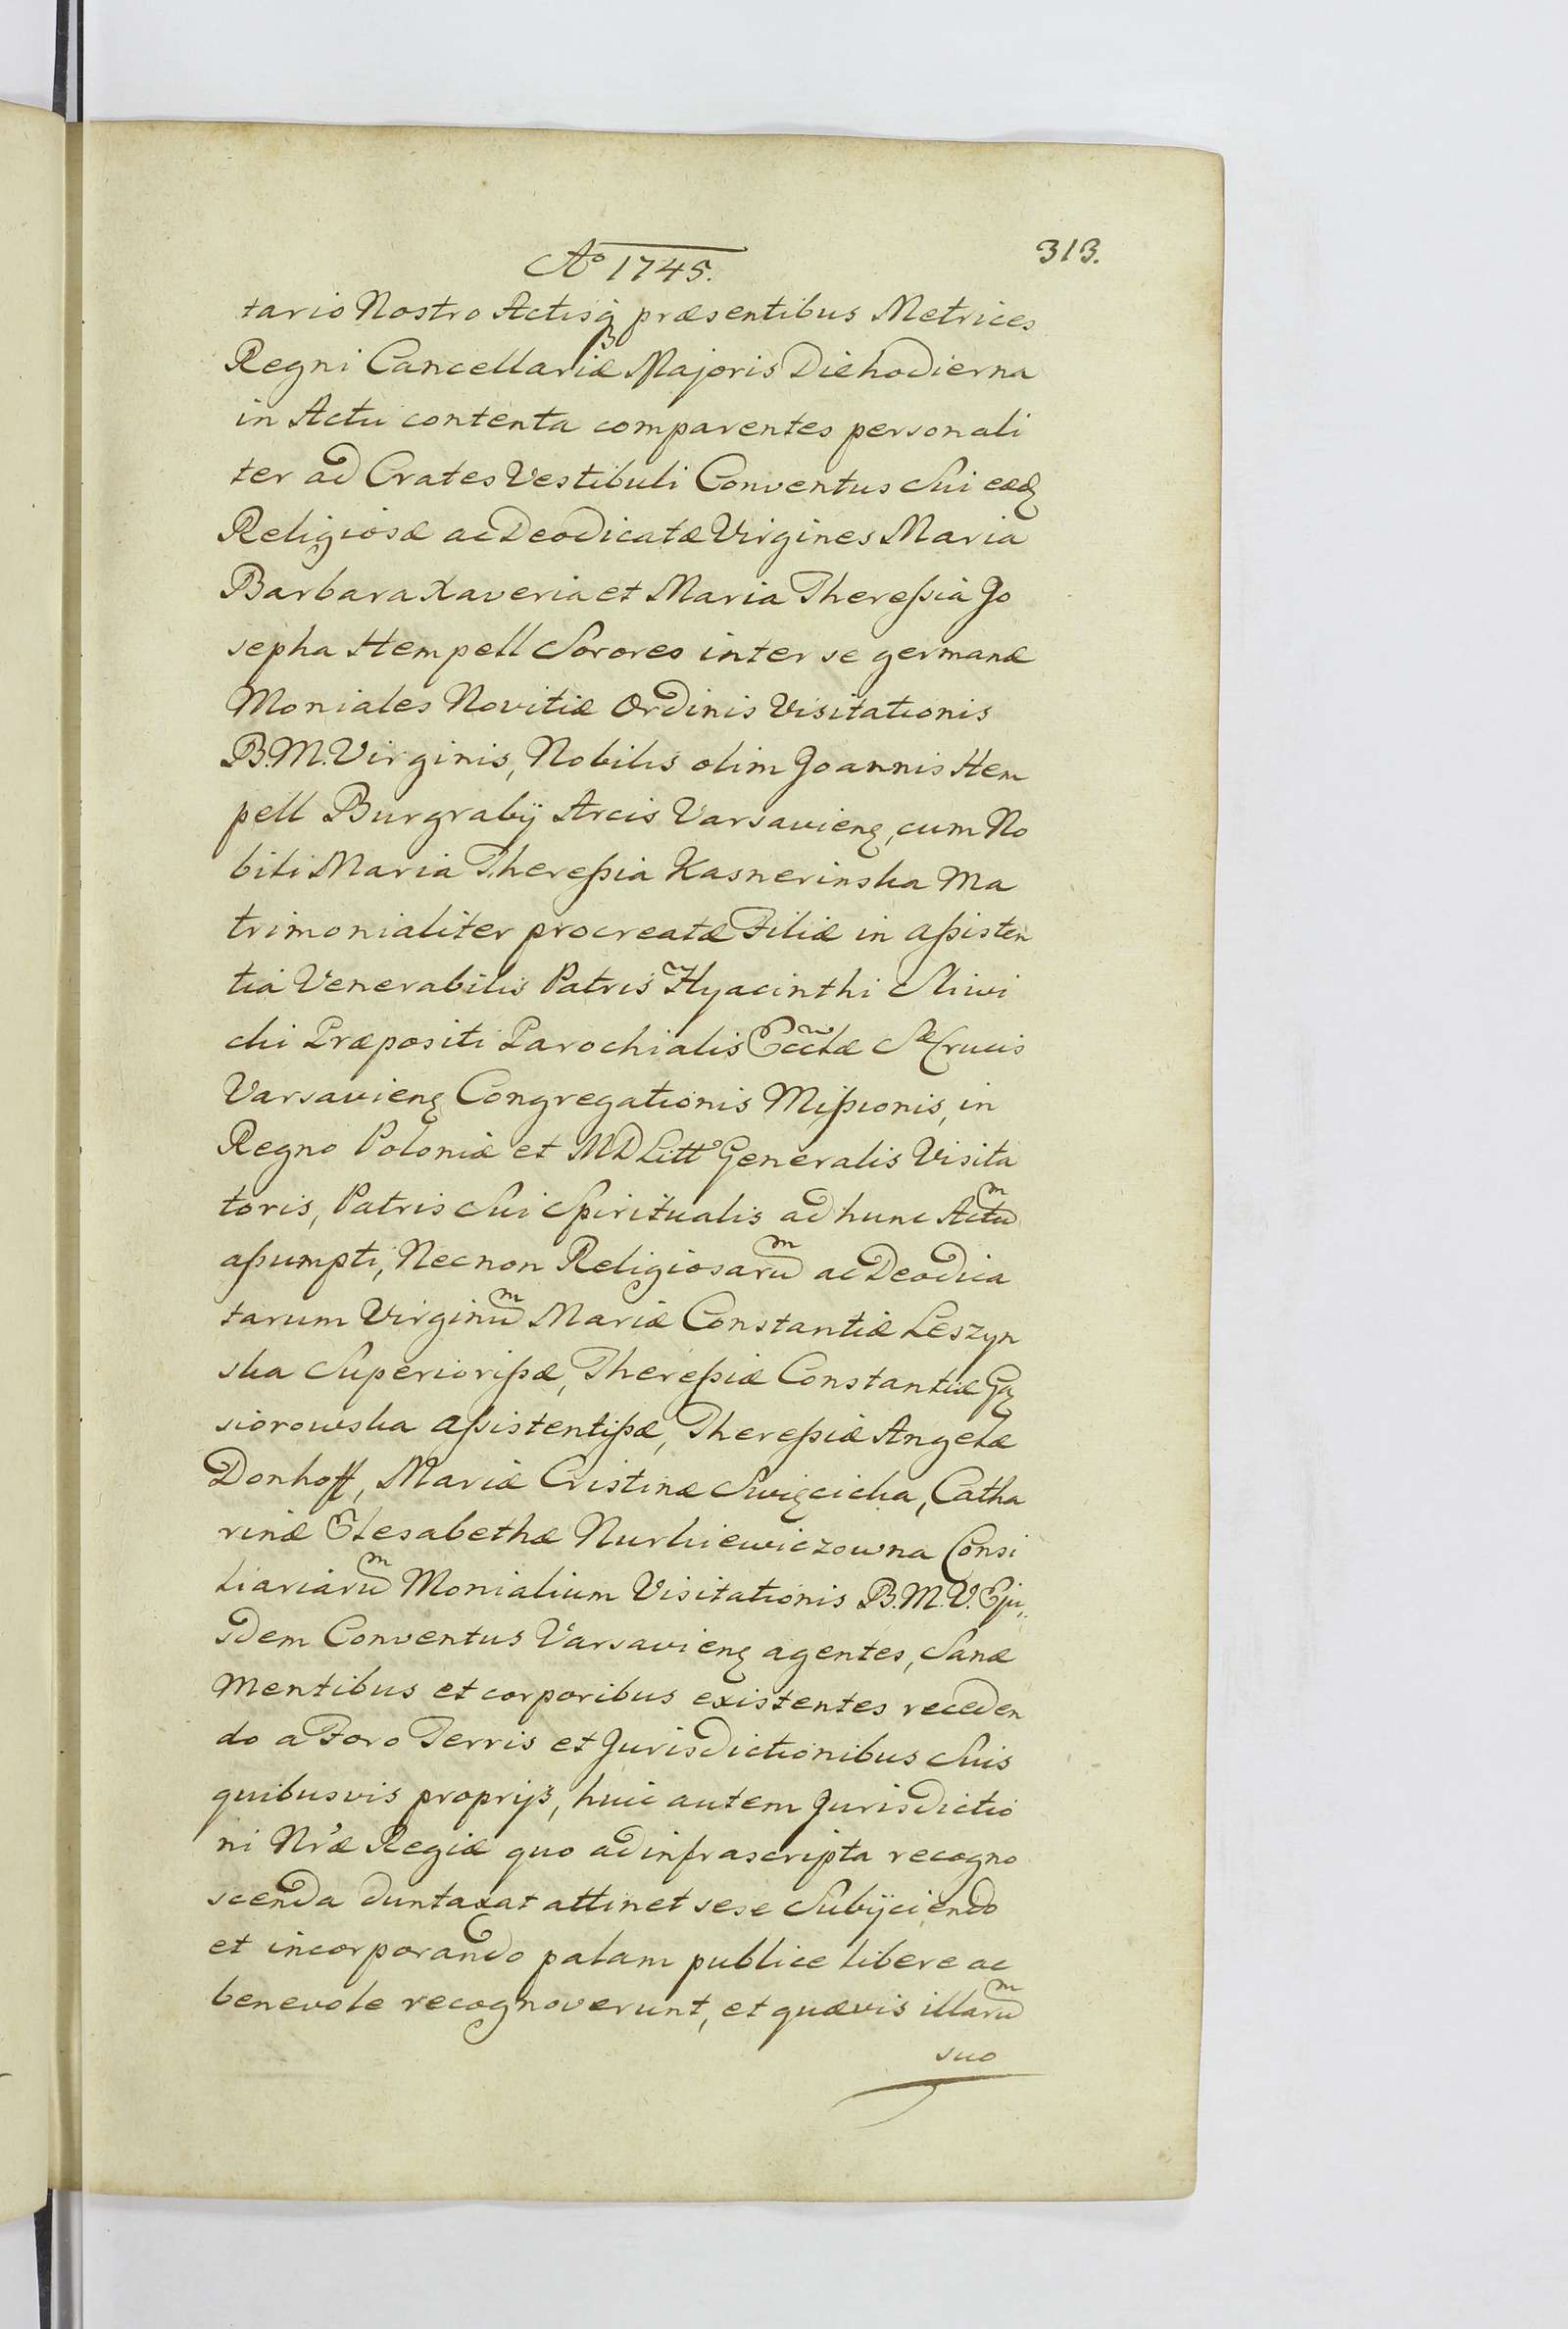 313.
Aº 1745.
tario Nostro Actisq̃ præsentibus Metrices
Regni Cancellariæ Majoris Die hodierna
in Actu contenta comparentes personali
ter ad Crates Vestibuli Conventus Sui eædẽ
Religiosæ ac Deodicatæ Virgines Maria
Barbara Xaveria et Maria Theressia Jo
sepha Hempell Sorores inter se germanæ
Moniales Novitiæ Ordinis Visitationis
B.M. Virginis, Nobilis olim Joannis Hem
pell Burgrabij Arcis Varsavieng, cum No
bili Maria Theressia Kasnerinska Ma
trimonialiter procreatæ Filiæ in assisten
tia Venerabilis Patris Hyacinthi Sliwi
cki Præpositi Parochialis Ecclæ Sæ Crucis
Varsavieng Congregationis Missionis, in
Regno Poloniæ et MDLitt Generalis Visita
toris, Patris Sui Spiritualis ad hunc Actuͫ
assumpti, Necnon Religiosaruͫ ac Deodica
tarum Virginuͫ Mariæ Constantiæ Leszyn
ska Superiorissæ, Theressiæ Constantiæ Gą
siorowska assistentissæ, Theressiæ Angelæ
Donhoff, Mariæ Cristinæ Swięcicka, Catha
rinæ Elesabethæ Nurkiewiczowna Consi
liariaruͫ Monialium Visitationis B.M.V. Eju„
sdem Conventus Varsavieng agentes, Sanæ
Mentibus et corporibus existentes receden
do a Foro Terris et Jurisdictionibus Suis
quibusvis proprijs, huic autem Jurisdictio
ni Nr̃æ Regiæ quo ad infrascripta recogno
scenda duntaxat attinet sese Subijciendo
et incorporando palam publice libere ac
benevole recognoverunt, et quævis illaruͫ
suo